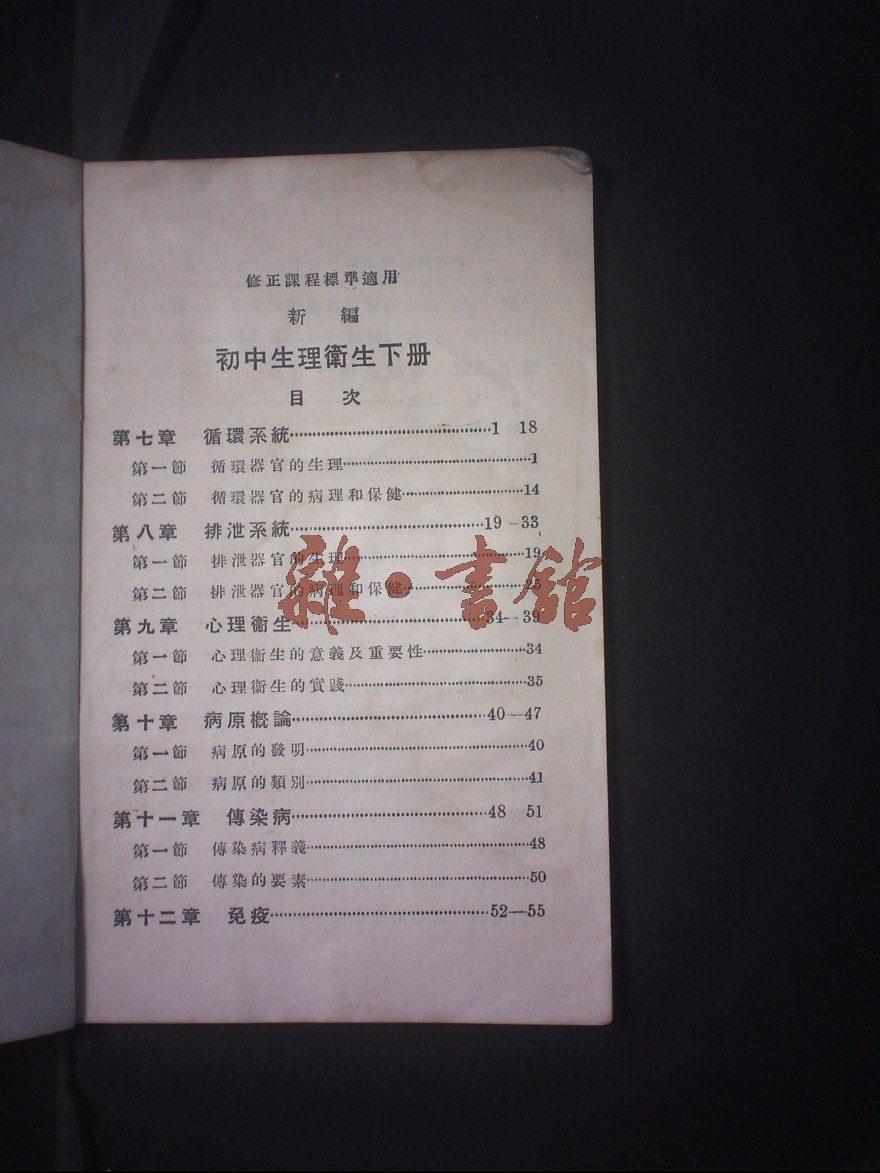 修正課程標準適用
新 編
初中生理衞生下册
目 次
第七章 循環系統……………………………1 18
第一節 循環器官的生理……………………………1
第二節 循環器官的病理和保健……………………14
第八章 排泄系統……………………………19—33
第一節 排泄器官的生理……………………………19
第二節 排泄器官的病理和保健……………………25
第九章 心理衞生……………………………34—39
第一節 心理衞生的意義及重要性…………………34
第二節 心理衞生的實踐……………………………35
第十章 病原概論……………………………40—47
第一節 病原的發明…………………………………40
第二節 病原的類別…………………………………41
第十一章 傳染病……………………………48 51
第一節 傳染病釋義…………………………………48
第二節 傳染的要素…………………………………50
第十二章 免疫………………………………52—55
雜·書館